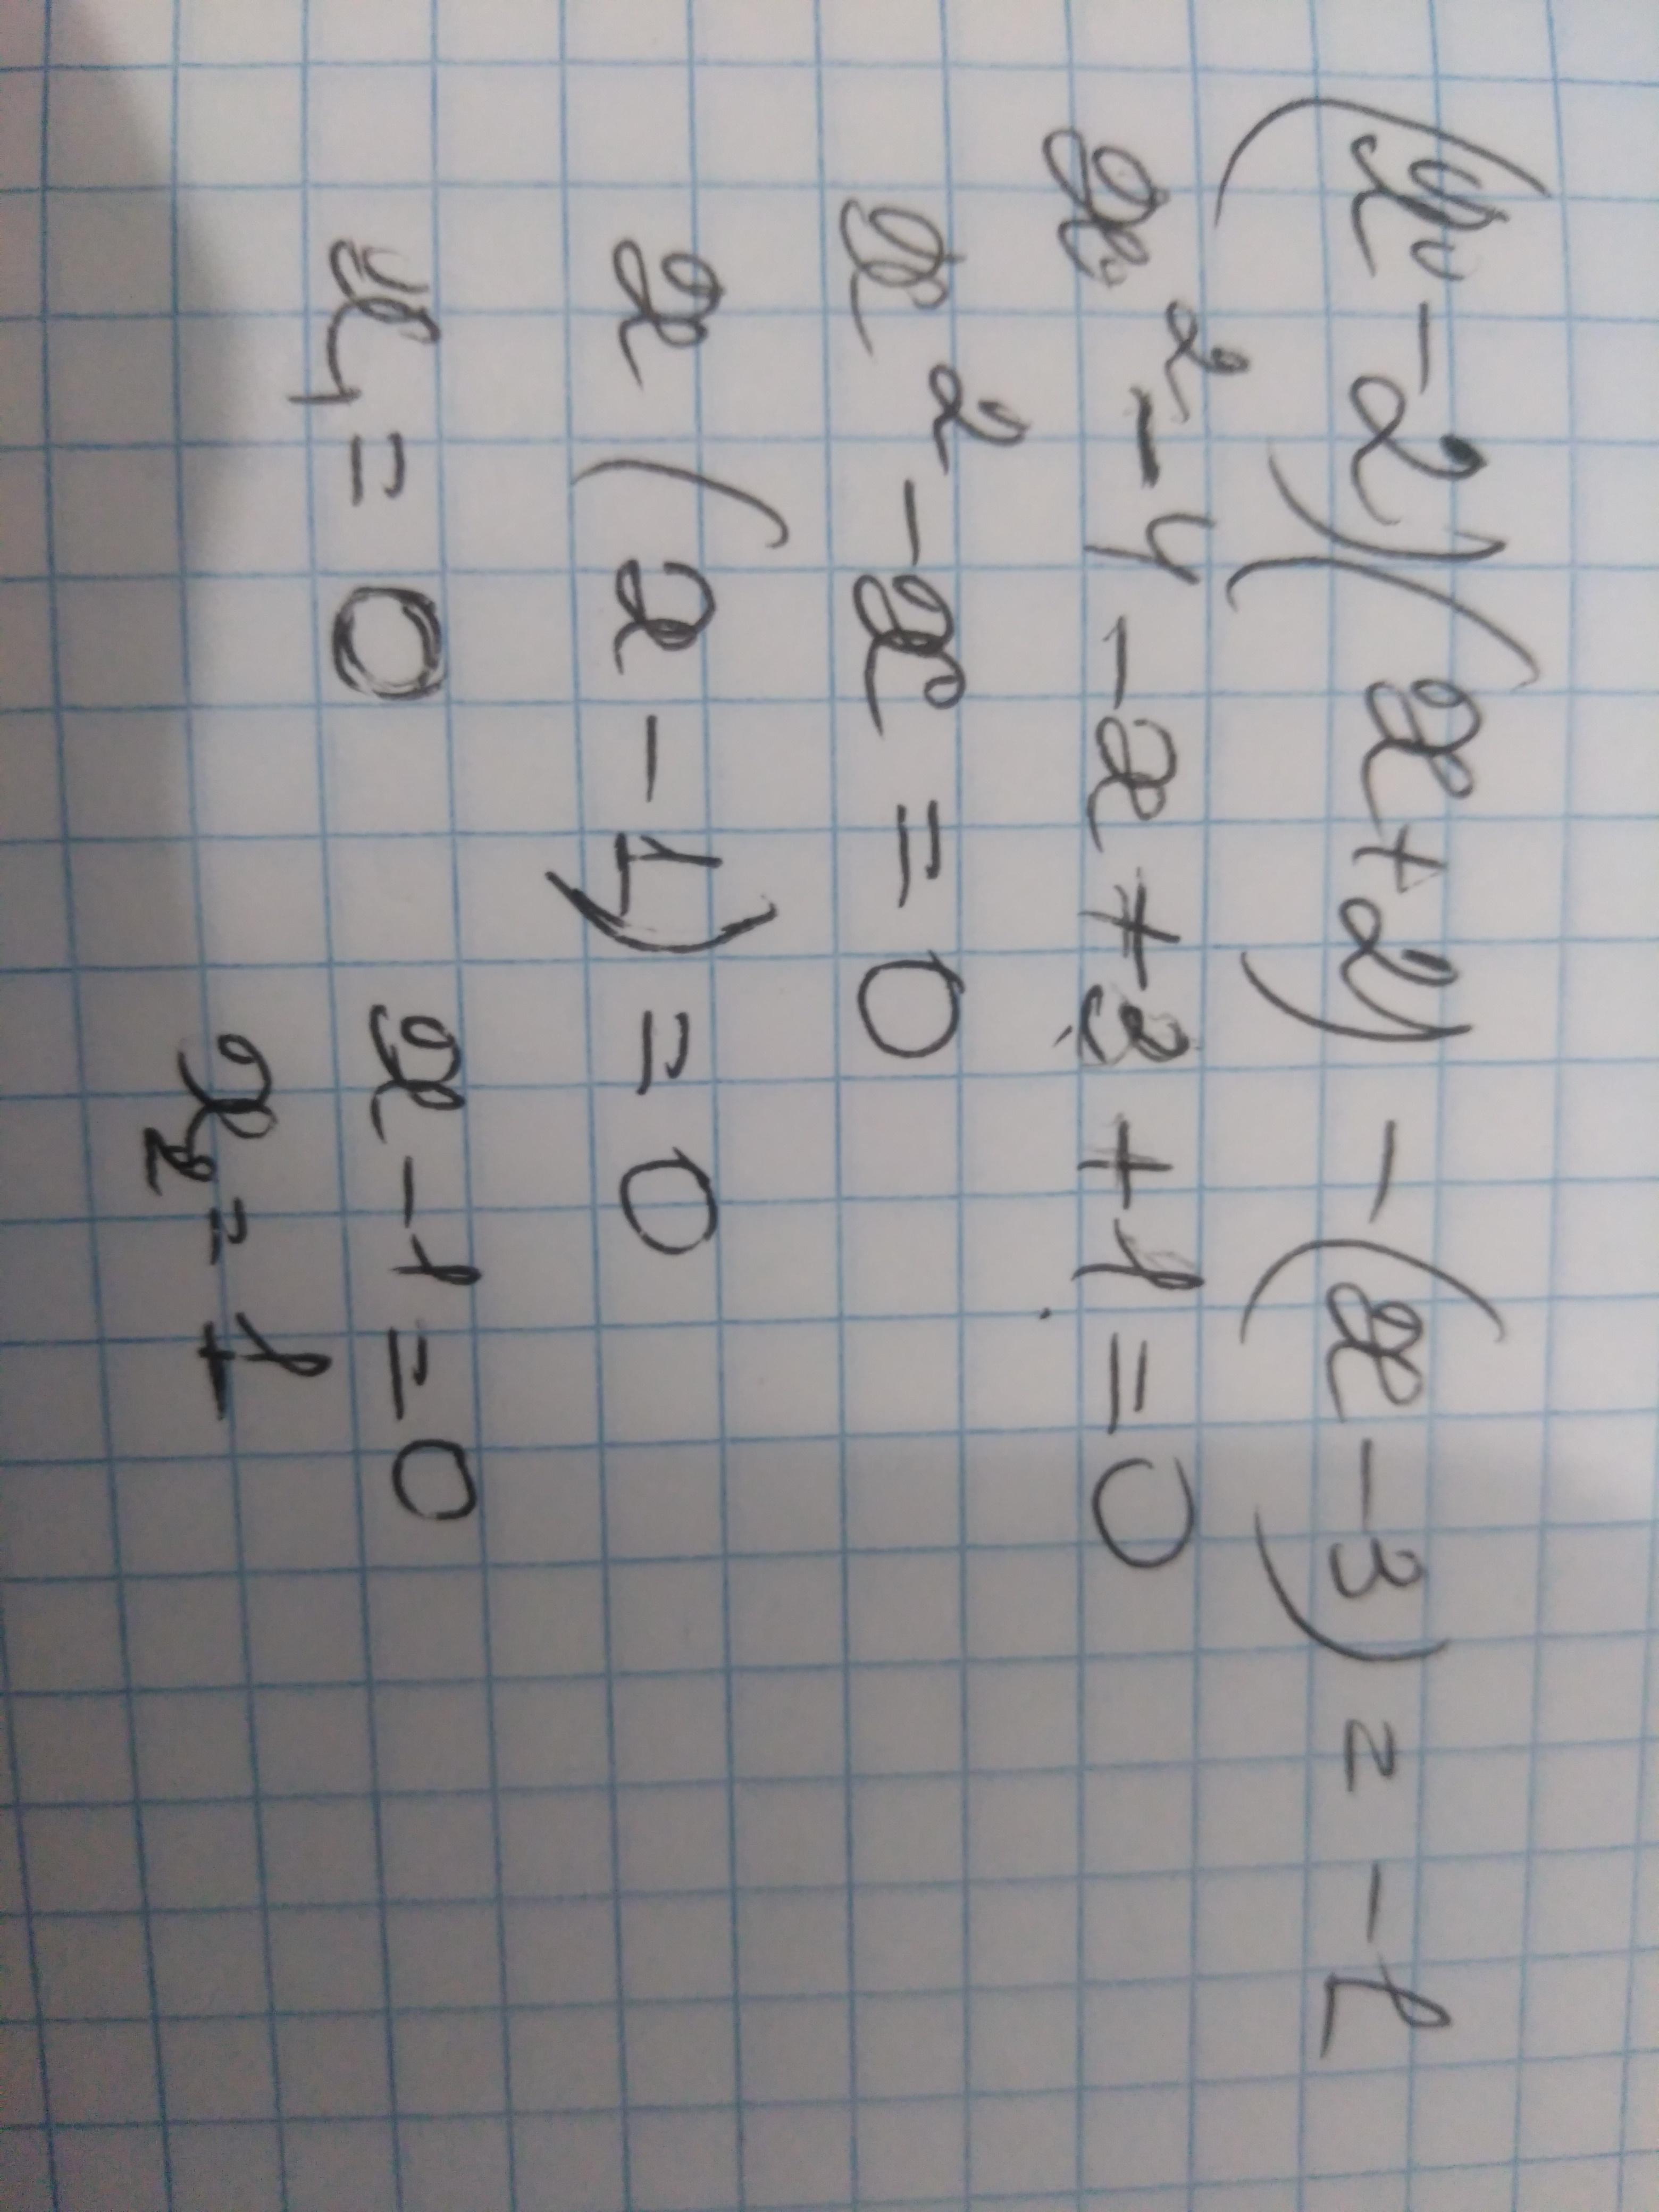 (x-2)(x+2) - (x-3) = -1
x² - 4 - x + 3 + 1 = 0
x² - x = 0
x (x - 1) = 0
x₁ = 0 x - 1 = 0
x₂ = 1